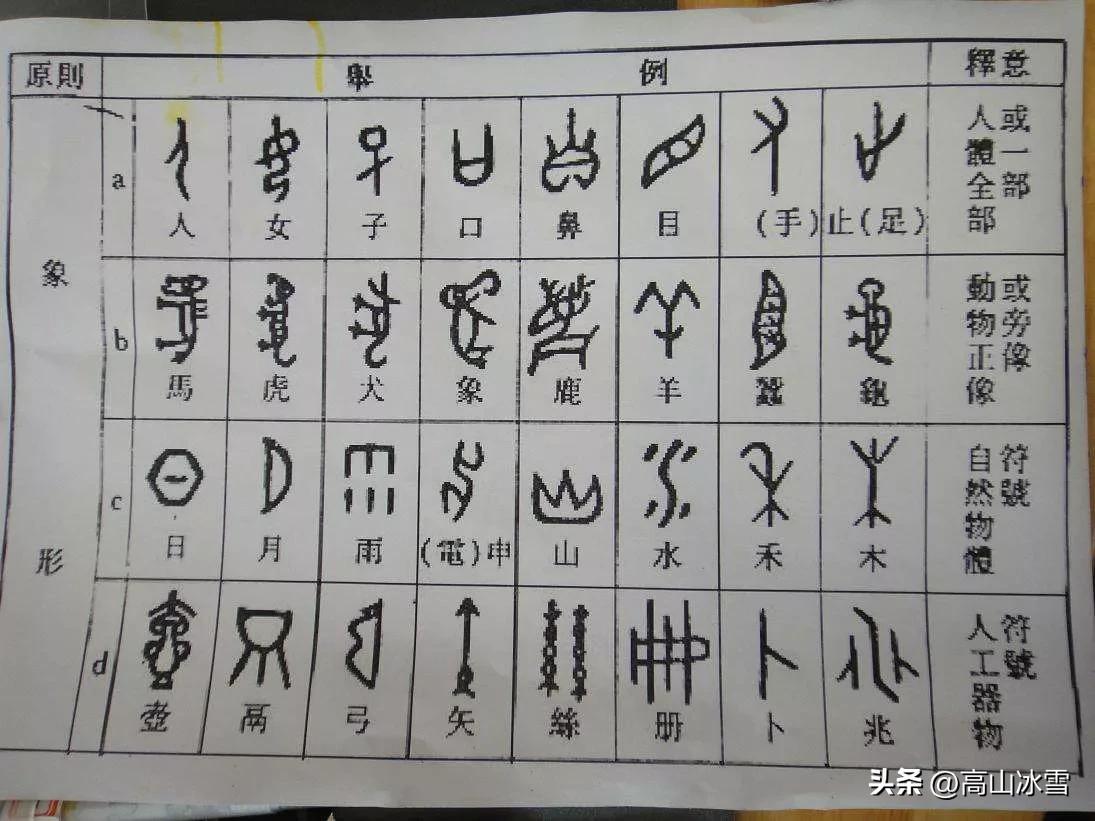 原則 舉例 釋意
象形
a 人 女 子 口 鼻 目 (手) 止(足) 人體全部或一部
b 馬 虎 犬 象 鹿 羊 蠶 龜 動物正像或旁像
c 日 月 雨 (電)申 山 水 禾 木 自然物體符號
d 壺 鬲 弓 矢 絲 册 卜 兆 人工器物符號
头条 @高山冰雪